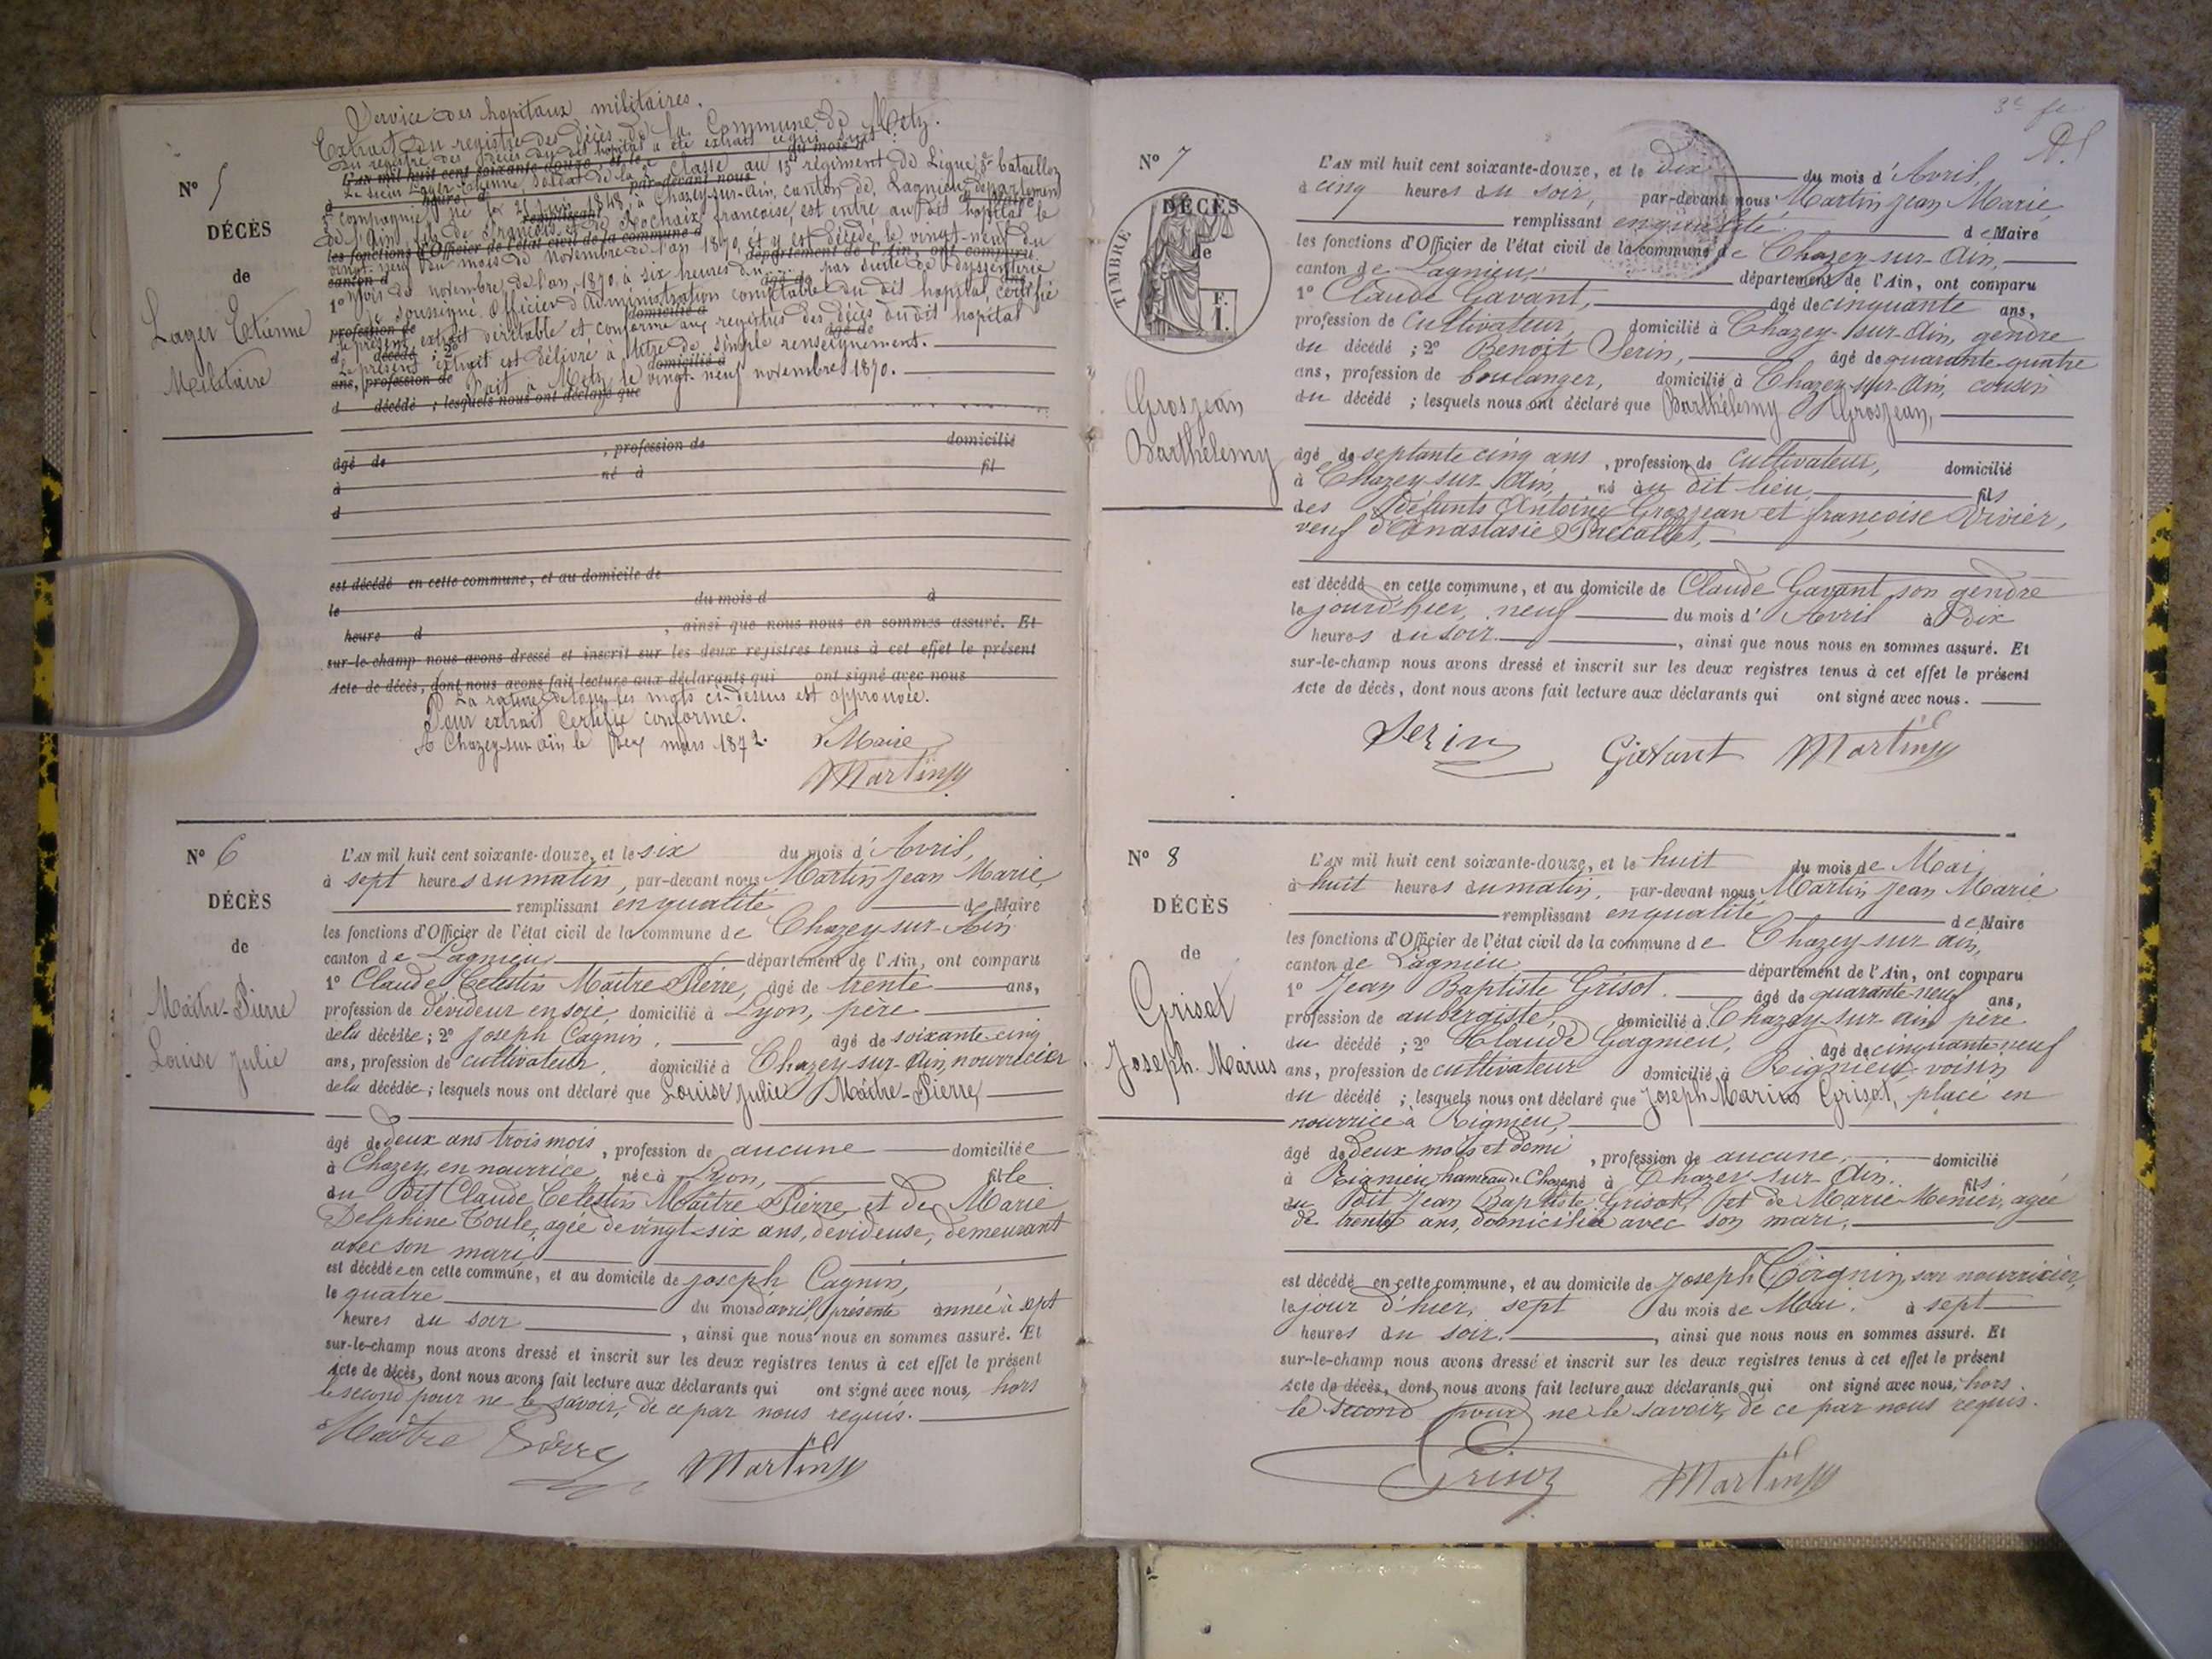 Service des hopitaux militaires.
Extrait du registre des décès de la Commune de Metz.
Du registre des décès du dit hopital a été extrait ce qui suit:
L'AN mil huit cent soixante-douze, et le du mois d
Le sieur Lager Etienne soldat de la 2e classe au 15e régiment de Ligne, 3e bataillon
N° 5
DÉCÈS
de
Lager Etienne
Militaire
compagnie, né le 21 juin 1848, à Chazey-sur-Ain, canton de Lagnieu, département
de l'Ain, fils de François et de Rochaix françoise, est entré au dit hopital le
les fonctions d'Officier de l'état civil de la commune d
vingt-neuf du mois de novembre de l'an 1870, et y est décédé le vingt-neuf du
canton d département de l'Ain, ont comparu
1° mois de novembre de l'an 1870, à six heures du par suite de dyssenterie
Je soussigné Officier d'Administration comptable du dit hopital, certifie
profession de domicilié à
le présent extrait véritable et conforme aux registres des décès du dit hopital
d décédé ; 2° âgé de
Le présent extrait est délivré à titre de simple renseignement.
ans, profession de domicilié à
Fait à Metz le vingt-neuf novembre 1870.
d décédé ; lesquels nous ont déclaré que
âgé de , profession de domicilié
à né à fil
d
est décédé en cette commune, et au domicile de
le du mois d à
heure d , ainsi que nous nous en sommes assuré. Et
sur-le-champ nous avons dressé et inscrit sur les deux registres tenus à cet effet le présent
Acte de décès, dont nous avons fait lecture aux déclarants qui ont signé avec nous
La rature de tous les mots ci-dessus est approuvée.
Pour extrait Certifié conforme.
A Chazey-sur-ain le mars 1872. Le Maire
Martin
N° 6
DÉCÈS
de
Maître-Pierre
Louise Julie
L'AN mil huit cent soixante-douze, et le six du mois d'Avril,
à sept heures du matin, par-devant nous Martin Jean Marie,
remplissant en qualité de Maire
les fonctions d'Officier de l'état civil de la commune de Chazey-sur-Ain
canton de Lagnieu, département de l'Ain, ont comparu
1° Claude Celestin Maître Pierre, âgé de trente ans,
profession de dévideur en soie, domicilié à Lyon, père
de la décédée ; 2° Joseph Cagnin, âgé de soixante cinq
ans, profession de cultivateur, domicilié à Chazey-sur-Ain, nourricier
de la décédée ; lesquels nous ont déclaré que Louise Julie Maître-Pierre
âgé de deux ans trois mois, profession de aucune domiciliée
à Chazey, en nourrice, née à Lyon, fille
du dit Claude Celestin Maître Pierre et de Marie
Delphine Toule, agée de vingt-six ans, dévideuse, demeurant
avec son mari
est décédée en cette commune, et au domicile de Joseph Cagnin,
le quatre du mois d'avril, présente année à sept
heures du soir , ainsi que nous nous en sommes assuré. Et
sur-le-champ nous avons dressé et inscrit sur les deux registres tenus à cet effet le présent
Acte de décès, dont nous avons fait lecture aux déclarants qui ont signé avec nous, hors
le second pour ne le savoir, de ce par nous requis.
Maître Pierre Martin
3e fe
N° 7
DÉCÈS
de
TIMBRE
F.
I.
Grosjean
Barthélemy
L'AN mil huit cent soixante-douze, et le Dix du mois d'Avril,
à cinq heures du soir, par-devant nous Martin Jean Marie,
remplissant en qualité de Maire
les fonctions d'Officier de l'état civil de la commune de Chazey-sur-Ain,
canton de Lagnieu, département de l'Ain, ont comparu
1° Claude Gavant, âgé de cinquante ans,
profession de Cultivateur, domicilié à Chazey-sur-Ain, gendre
du décédé ; 2° Benoit Serin, âgé de quarante-quatre
ans, profession de boulanger, domicilié à Chazey-sur-Ain, cousin
du décédé ; lesquels nous ont déclaré que Barthélemy Grosjean,
âgé de septante cinq ans, profession de Cultivateur, domicilié
à Chazey-sur-Ain, né au dit lieu, fils
des défunts Antoine Grosjean et françoise Vivier,
veuf d'Anastasie Paccallet,
est décédé en cette commune, et au domicile de Claude Gavant son gendre
le jourd'hier, neuf du mois d'Avril à Dix
heures du soir , ainsi que nous nous en sommes assuré. Et
sur-le-champ nous avons dressé et inscrit sur les deux registres tenus à cet effet le présent
Acte de décès, dont nous avons fait lecture aux déclarants qui ont signé avec nous.
Serin Gavant Martin
N° 8
DÉCÈS
de
Grisot
Joseph-Marius
L'AN mil huit cent soixante-douze, et le huit du mois de Mai,
à huit heures du matin, par-devant nous Martin Jean Marie
remplissant en qualité de Maire
les fonctions d'Officier de l'état civil de la commune de Chazey-sur ain,
canton de Lagnieu département de l'Ain, ont comparu
1° Jean Baptiste Grisot. âgé de quarante neuf ans,
profession de aubergiste, domicilié à Chazey-sur-ain père
du décédé ; 2° Claude Gagnieu, âgé de cinquante neuf
ans, profession de cultivateur domicilié à Rignieu voisin
du décédé ; lesquels nous ont déclaré que Joseph Marius Grisot, placé en
nourrice à Rignieu,
âgé de deux mois et demi, profession de aucune, domicilié
à Rignieu hameau de Chazey né à Chazey-sur-Ain. fils
du dit Jean Baptiste Grisot, et de Marie Menier, agée
de trente ans, domiciliée avec son mari,
est décédé en cette commune, et au domicile de Joseph Coignin son nourricier,
le jour d'hier, sept du mois de Mai. à sept
heures du soir. , ainsi que nous nous en sommes assuré. Et
sur-le-champ nous avons dressé et inscrit sur les deux registres tenus à cet effet le présent
Acte de décès, dont nous avons fait lecture aux déclarants qui ont signé avec nous, hors
le second pour ne le savoir, de ce par nous requis.
Grisot Martin